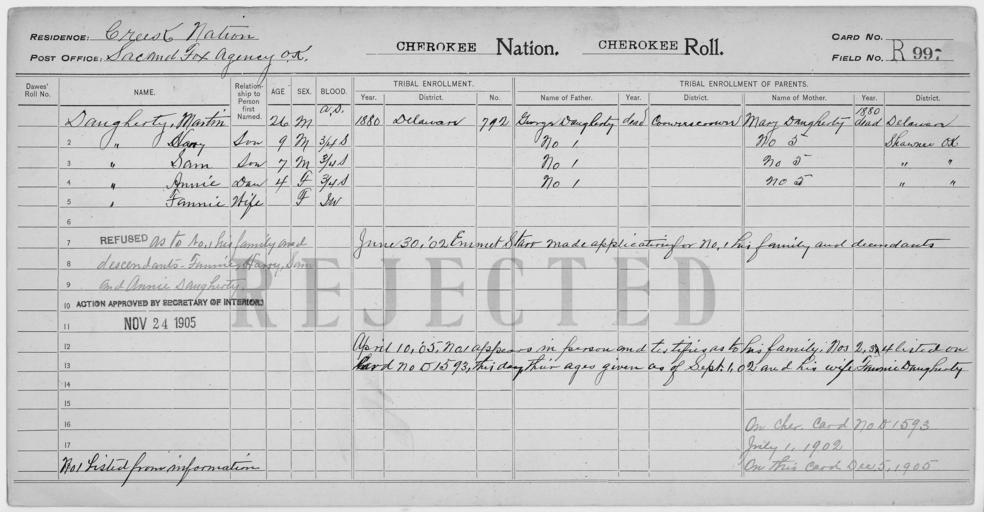 RESIDENCE: Creek Nation
POST OFFICE: Sac and Fox Agency O.K.
CHEROKEE Nation. CHEROKEE Roll.
CARD NO.
FIELD NO. R 997
Dawes' Roll No. NAME. Relationship to Person first Named. AGE SEX. BLOOD. TRIBAL ENROLLMENT. TRIBAL ENROLLMENT OF PARENTS.
Year. District. No. Name of Father. Year. District. Name of Mother. Year. District.
Daugherty, Martin 26 M A.S. 1880 Delaware 792 George Daugherty dead Cooweescoowee Mary Daugherty 1880 dead Delaware
2 " Harry Son 9 M 3/4 S No 1 No 5 Shawnee OK
3 " Sam Son 7 M 3/4 S No 1 No 5 " "
4 " Annie Dau 4 F 3/4 S No 1 No 5 " "
5 " Fannie Wife F IW
6
7 REFUSED as to No. 1 his family and June 30, '02 Emmet Starr made application for No. 1 his family and decendants
8 descendants - Fannie, Harry, Sam
9 and Annie Daugherty.
REJECTED
10 ACTION APPROVED BY SECRETARY OF INTERIOR.
11 NOV 24 1905
12 April 10, '05, No 1 appears in person and testifies as to his family, Nos 2, 3, 4 listed on
13 Card No D 1593, this day their ages given as of Sept. 1, 02 and his wife Fannie Daugherty
14
15
16 On Cher. Card No D 1593
17 July 1, 1902
No 1 Listed from information On this Card Dec 5, 1905